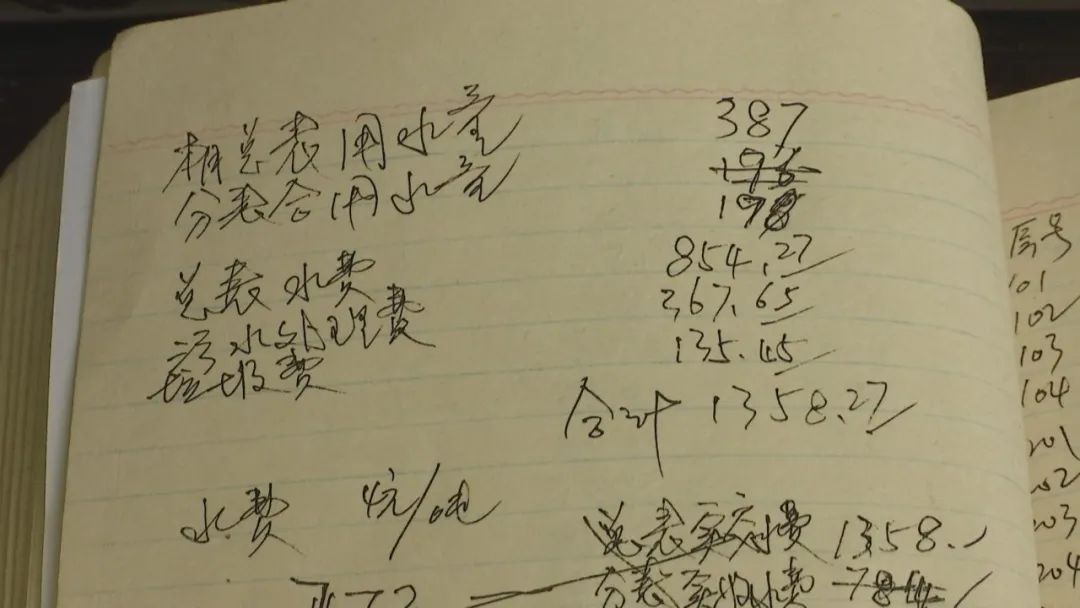 相总表用水量 387
分表合用水量 196
198
总表水费 854.27
污水处理费 367.65
垃圾费 135.45
合计 1358.27
水费 4元/吨
总表实交水费 1358.
分表实收水费 784
房号
101
102
103
104
201
202
203
204